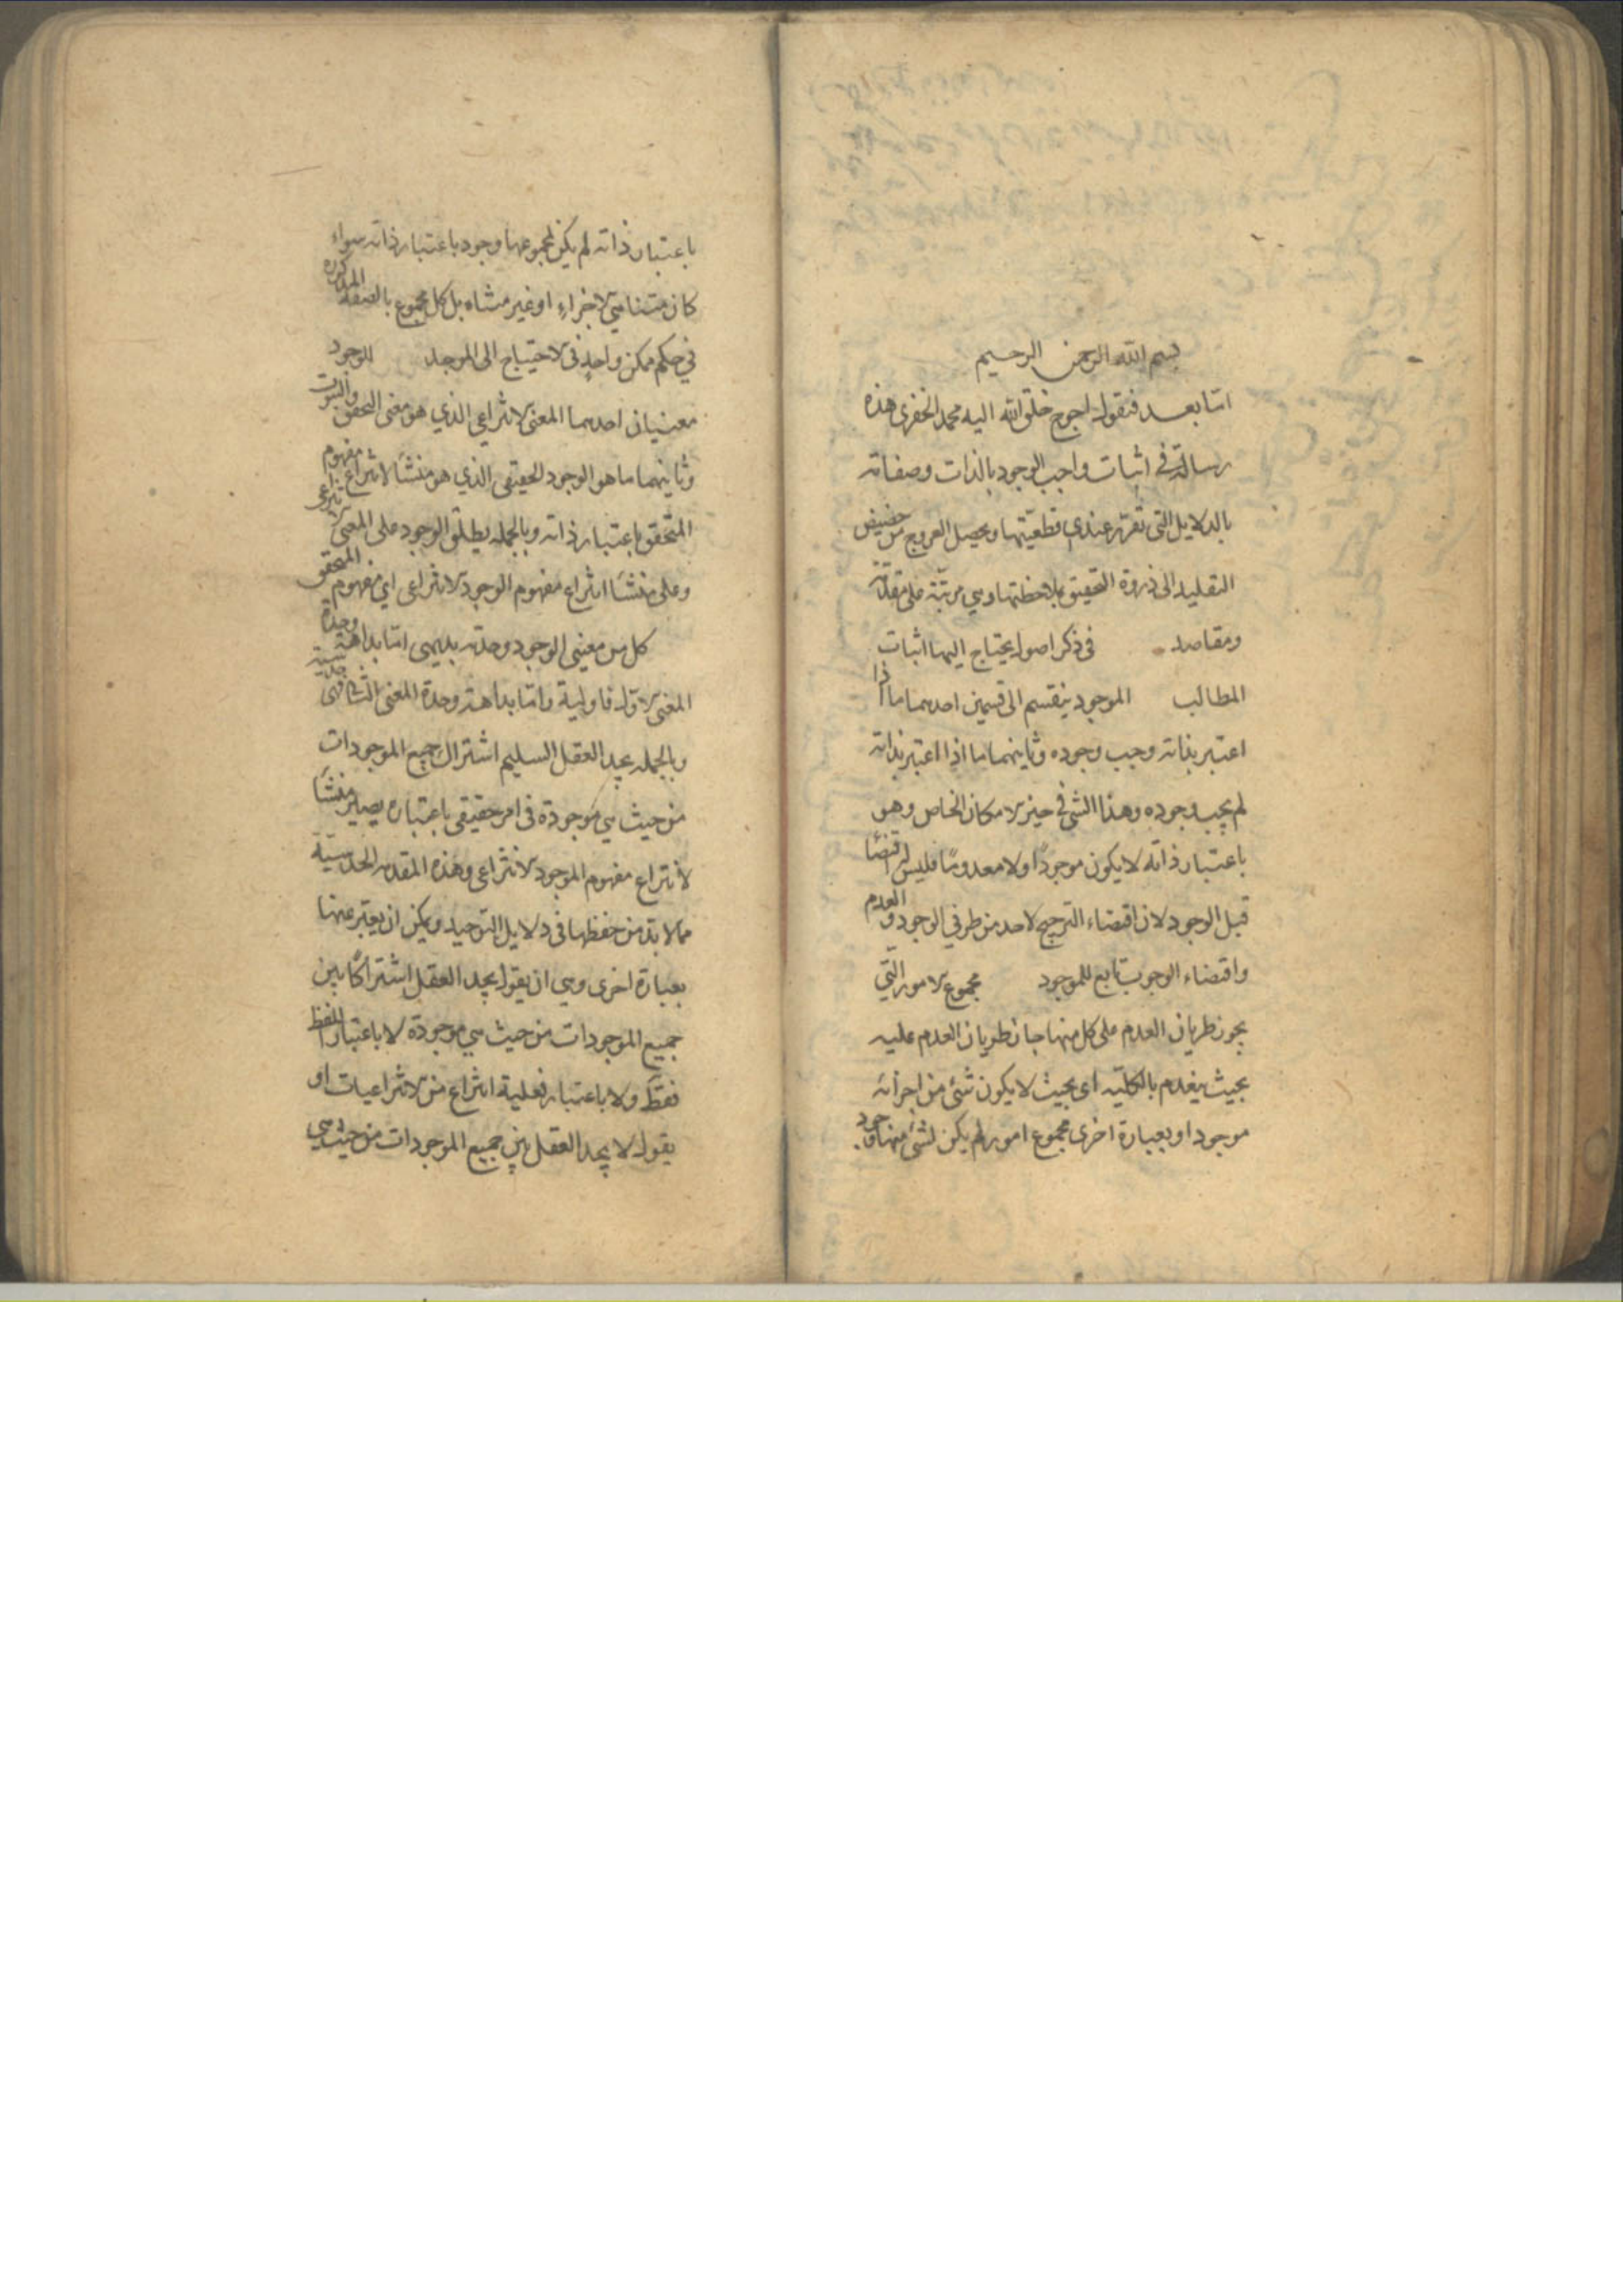 بسم الله الرحمن الرحيم
امّا بعد فنقول احوج خلق الله اليه محمد الخفرى هذه
رسالة فى اثبات واجب الوجود بالذات وصفاته
بالدلايل التى تقرر عندى قطعيّتها ويحصل العروج من حضيض
التقليد الى ذروة التحقيق بملاحظتها وهي مرتّبة على مقدّمة
ومقاصد فى ذكر اصول يحتاج اليها اثبات
المطالب الموجود ينقسم الى قسمين احدهما ما اذا
اعتبر بذاته وجب وجوده وثانيهما ما اذا اعتبر بذاته
لم يجب وجوده وهذا الشئ فى حيز الامكان الخاص وهو
باعتبار ذاته لا يكون موجودًا ولا معدومًا فليس له اقتضا
قبل الوجود لان اقتضاء الترجيح لاحد من طرفي الوجود والعدم
واقتضاء الوجوب تابع للموجود مجموع الامور التّي
يجوز طريان العدم على كل منها جاز طريان العدم عليه
بحيث ينعدم بالكليّه اى بحيث لا يكون شئ من اجزائه
موجود او بعبارة اخرى مجموع امور لم يكن لشئ منها وجود
باعتبار ذاته لم يكن لمجموعها وجود باعتبار ذاته سواء
كان متناهي الاجزاء او غير متناه بل كل مجموع بالصفة المذكوره
في حكم ممكن واحد فى الاحتياج الى الموجد الوجود
معنيان احدهما المعنى الانتزاعي الذي هو معنى التحقق والثبوت
وثانيهما ما هو الوجود الحقيقى الذي هو منشأ لانتزاع مفهوم
المتحقق باعتبار ذاته وبالجمله يطلق الوجود على المعنى الانتزاعى
وعلى منشأ انتزاع مفهوم الوجود الانتزاعى اي مفهوم المتحقق
كل من معنيى الوجود وحدته بديهى امّا بداهة وحدة
المعنى الاوّل فاولية وامّا بداهة وحدة المعنى الثانى فهى حدسية
وبالجمله يجد العقل السليم اشتراك جميع الموجودات
من حيث هي موجودة فى امر حقيقى باعتباره يصير منشأ
لانتزاع مفهوم الموجود الانتزاعى وهذه المقدمه الحدسيّة
مما لا بدّ من حفظها فى دلايل التوحيد ويمكن ان يعبّر عنها
بعبارة اخرى وهي ان يقول يجد العقل اشتراكًا بين
جميع الموجودات من حيث هي موجودة لا باعتبار اللفظ
فقط ولا باعتبار فعلية انتزاع من الانتزاعيات او
يقول لا يجد العقل بين جميع الموجودات من حيث هي